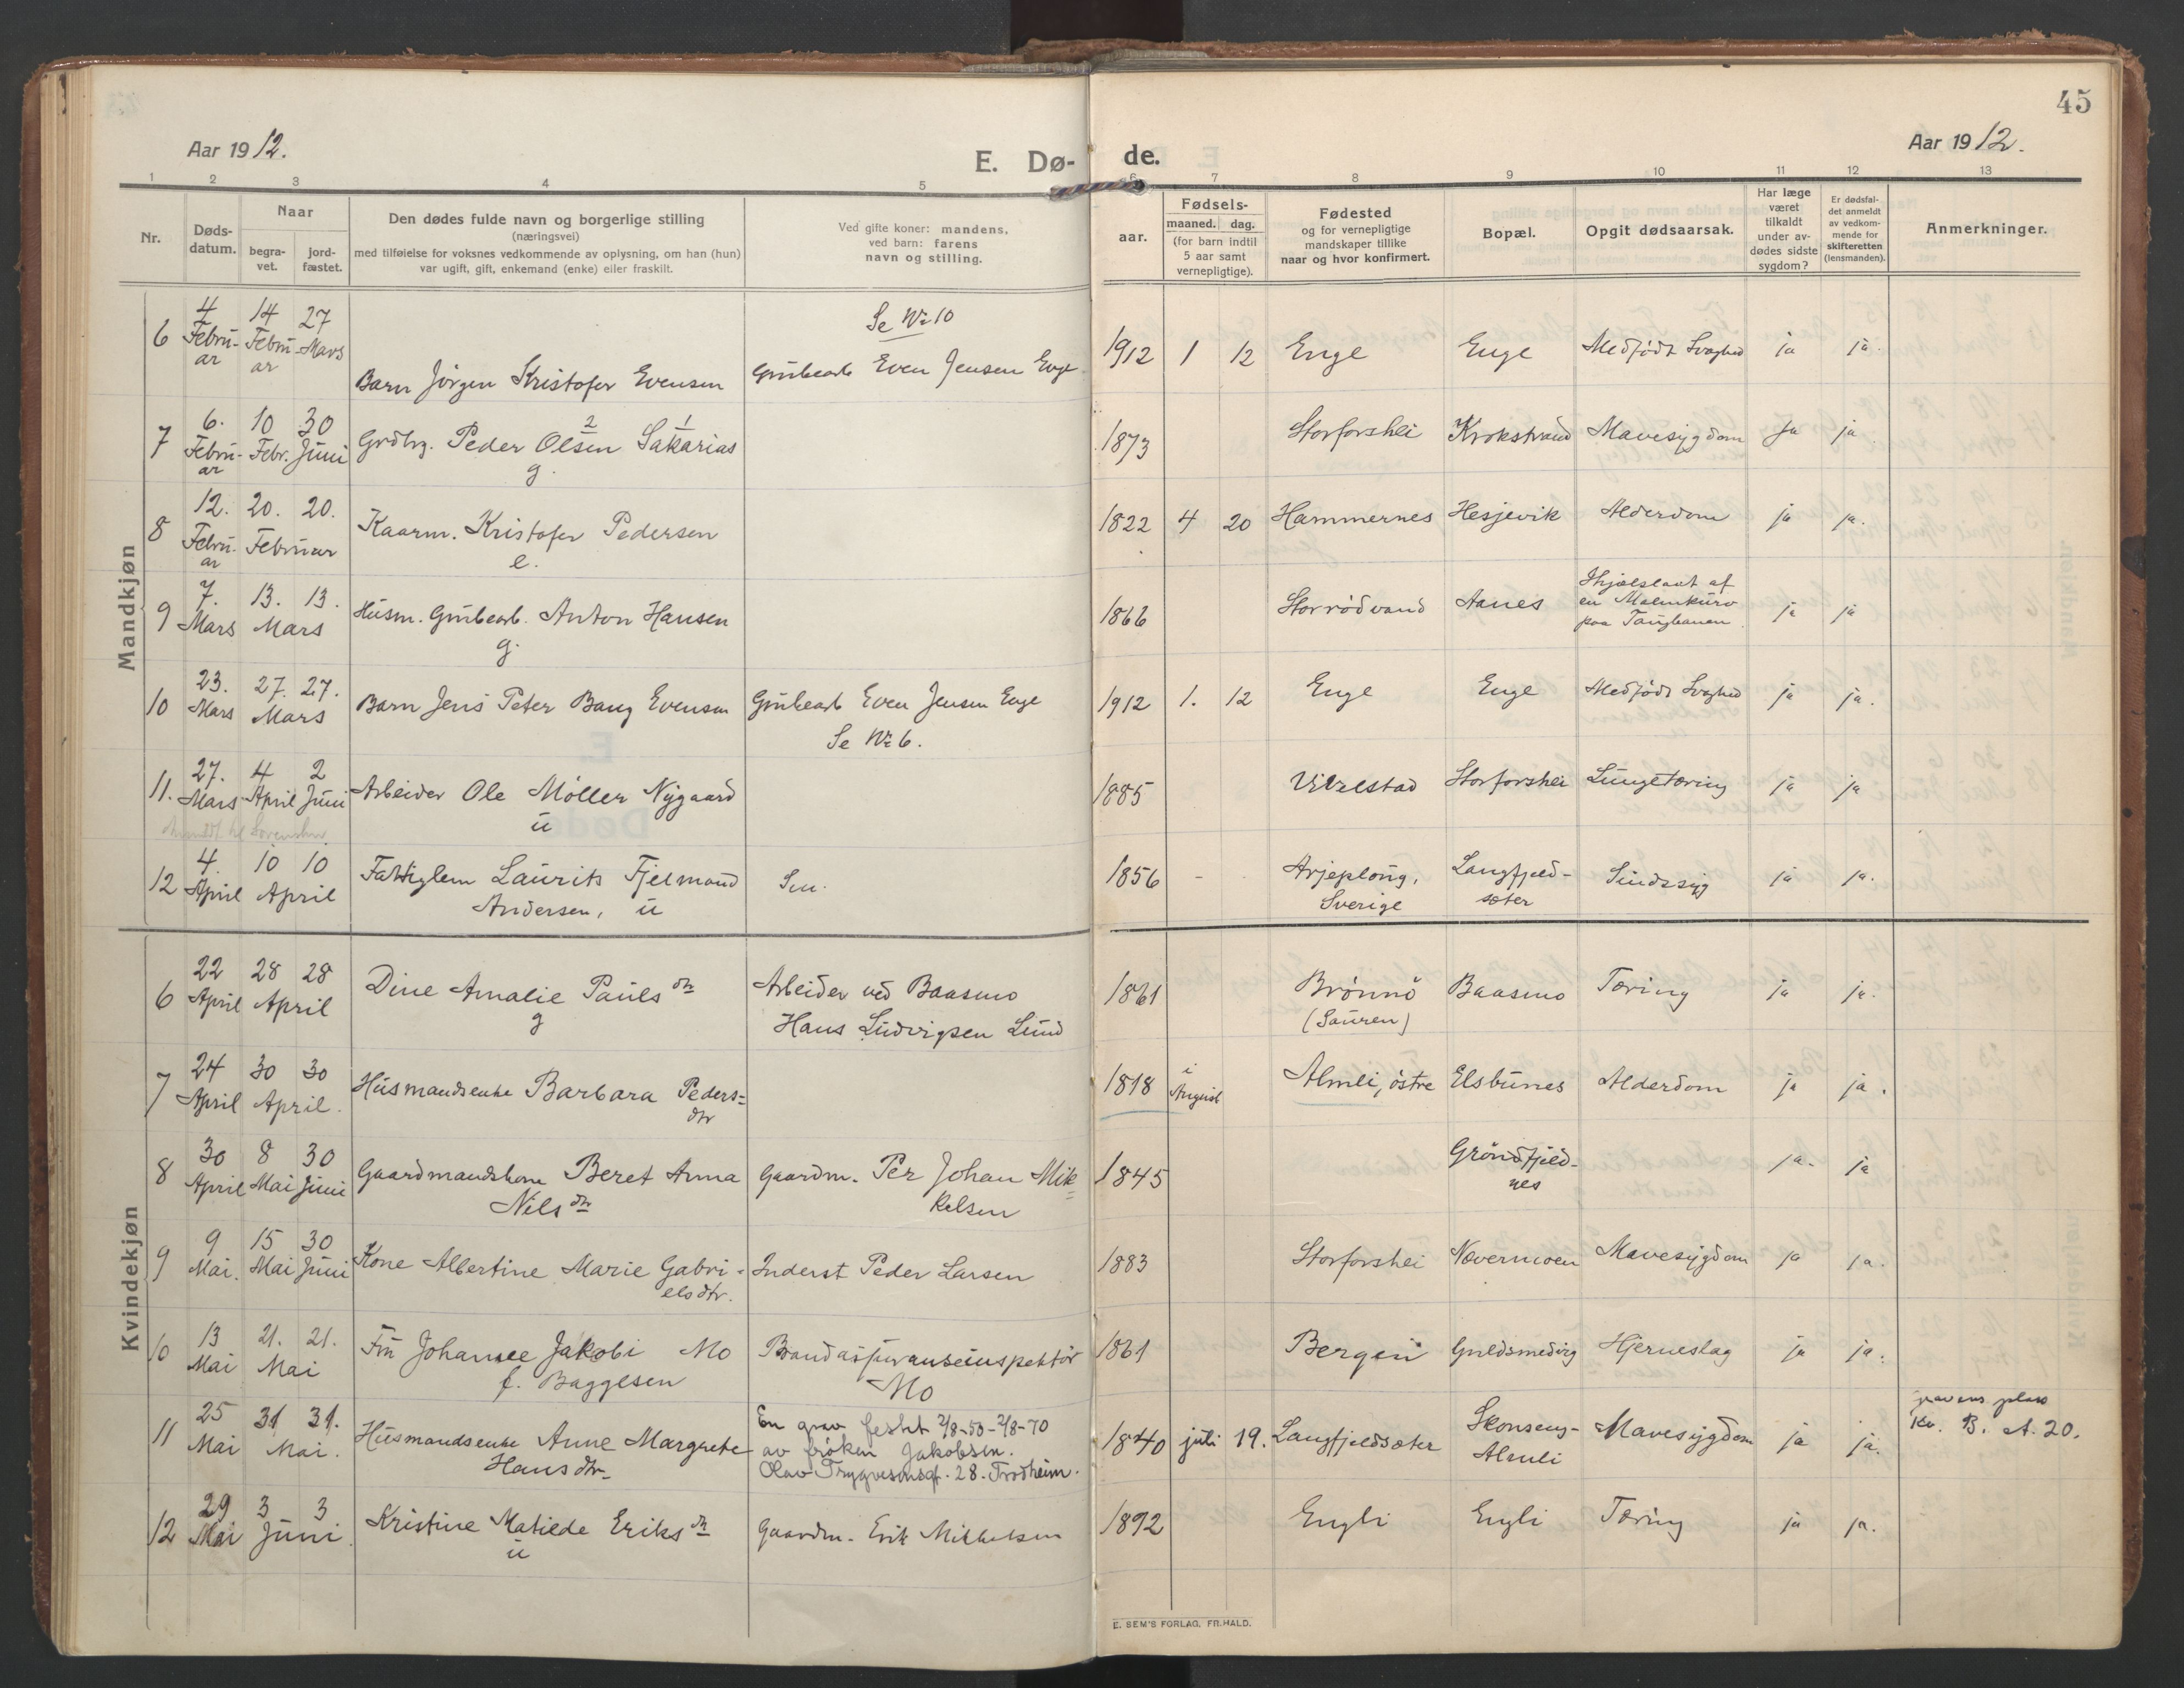 45
Aar 1912.
E. Dø- de.
Aar 1912.
1 2 3 4 5 6 7 8 9 10 11 12 13
Nr.
Døds-
datum.
Naar
begra-
vet.
jord-
fæstet.
Den dødes fulde navn og borgerlige stilling
(næringsvei)
med tilføielse for voksnes vedkommende av oplysning, om han (hun)
var ugift, gift, enkemand (enke) eller fraskilt.
Ved gifte koner: mandens,
ved barn: farens
navn og stilling.
Fødsels-
aar.
maaned. dag.
(for barn indtil
5 aar samt
vernepligtige).
Fødested
og for vernepligtige
mandskaper tillike
naar og hvor konfirmert.
Bopæl.
Opgit dødsaarsak.
Har læge
været
tilkaldt
under av-
dødes sidste
sygdom?
Er dødsfal-
det anmeldt
av vedkom-
mende for
skifteretten
(lensmanden).
Anmerkninger.
Mandkjøn
6 4 Febru-ar 14 Febru-ar 27 Mars Barn Jörgen Kristofer Evensen Se No 10 Grubearb Even Jensen Enge 1912 1 12 Enge Enge Medfødt Svaghed ja ja.
7 6. Febru-ar 10 Febr. 30 Juni Grdbrg. Peder Olsen 2 Sakarias 1 g. 1873 Storforshei Krokstrand Mavesygdom Ja ja
8 12. Febru-ar 20. 20. Februar Kaarm. Kristofer Pedersen e. 1822 4 20 Hammernes Hesjevik Alderdom ja ja.
9 7. Mars 13. 13. Mars Husm. Grubearb. Anton Hansen g. 1866 Storrødvand Aanes Ihjelslaat af en Malmkurv paa Taugbanen ja ja
10 23. Mars 27. 27. Mars Barn Jens Peter Bang Evensen Grubearb Even Jensen Enge Se No 6. 1912 1. 12 Enge Enge Medfødt Svaghed ja ja.
11. 27. Mars 4 April 2 Juni Arbeider Ole Möller Nygaard u 1885 Storforshei Lungetæring ja ja
12 4. April 10 10 April Fattiglem Laurits Fjelmand Andersen, u 1856 - - Arjeplong, Sverige Langfjeld-sæter Sindssyg ja ja.
Kvindekjøn
6 22 April 28 28 April Dine Amalie Paulsdtr g Arbeider ved Baasmo Hans Ludvigsen Lund 1861 Brönnö (Sauren) Baasmo Tæring ja ja.
7 24 April 30 30 April. Husmandsenke Barbara Peders=dtr 1818 i August Almli, östre Elsbunes Alderdom ja ja.
8 30 April 8 Mai 30 Juni Gaardmandskone Beret Anna Nilsdtr Gaardm. Per Johan Mik=kelsen 1845 Grönfjeld-nes ja. ja
9 9 Mai. 15 Mai 30 Juni Kone Albertine Marie Gabri-elsdtr. Inderst Peder Larsen 1883 Storforshei Nævermoen Mavesygdom ja ja.
10 13 Mai 21. 21. Mai Fru Johanne Jakobi Mo f. Baggesen Brandassuranseinspektör Mo 1861 Bergen Guldsmedvig Hjerneslag ja ja.
11 25 Mai 31 31. Mai. Husmandsenke Anne Margrete Hansdtr. En grav festet 2/8-50-2/8-70 av frøken Jakobsen. Olav Trygvesonsgt. 28. Trodheim. 1840 juli 19. Langfjeldsæter Skonseng-Almli Mavesygdom ja ja. gravens plass Kv. B. A. 20.
12 29 Mai 3 3 Juni Kristine Matilde Eriksdtr u Gaardm. Erik Mikkelsen 1892 Engli Engli Tæring ja ja.
E. SEM'S FORLAG, FR.HALD.